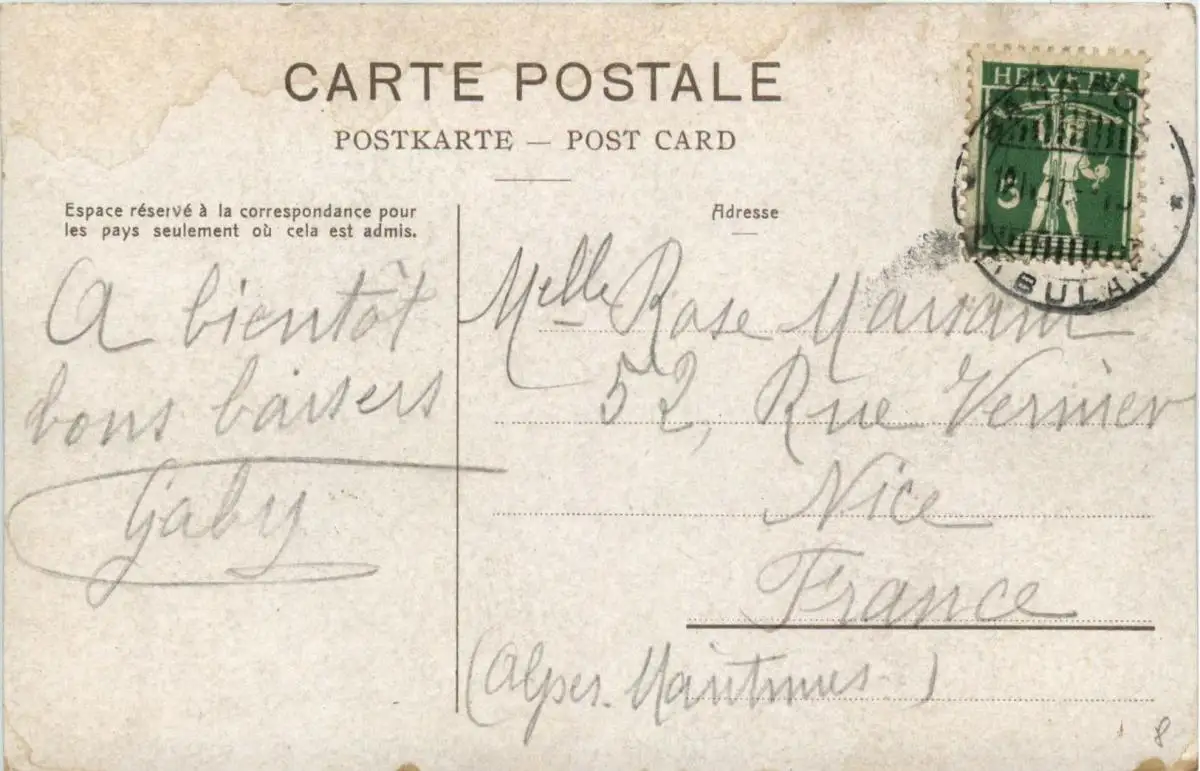 CARTE POSTALE
POSTKARTE — POST CARD
Espace réservé à la correspondance pour
les pays seulement où cela est admis.
A bientôt
bons baisers
Gaby
Adresse
Melle Rose
52, Rue Vernier
Nice
France
(Alpes. Maritimes.)
HELVETIA
5
BULAN
8